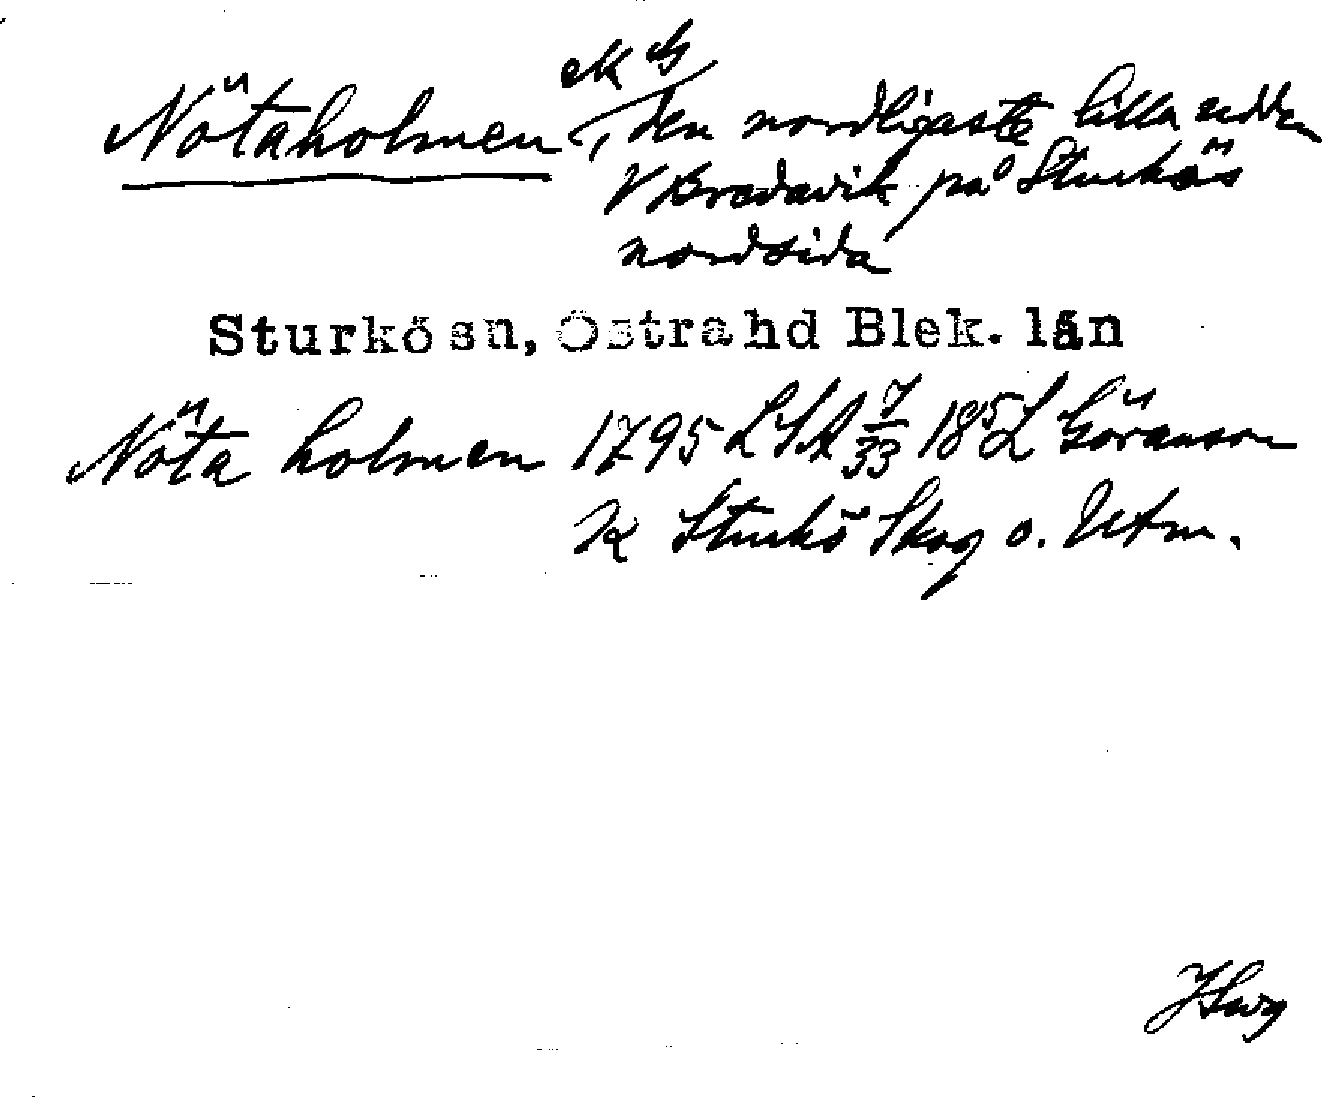 Nötaholmen, den nordligaste lilla udden
V Bredavik på Sturkös
nordsida
Sturkö sn, Östra hd Blek. län
Nöta holmen 1795 LSA 7/33 18 L Göranson
K Sturkö Skog o. Utm.